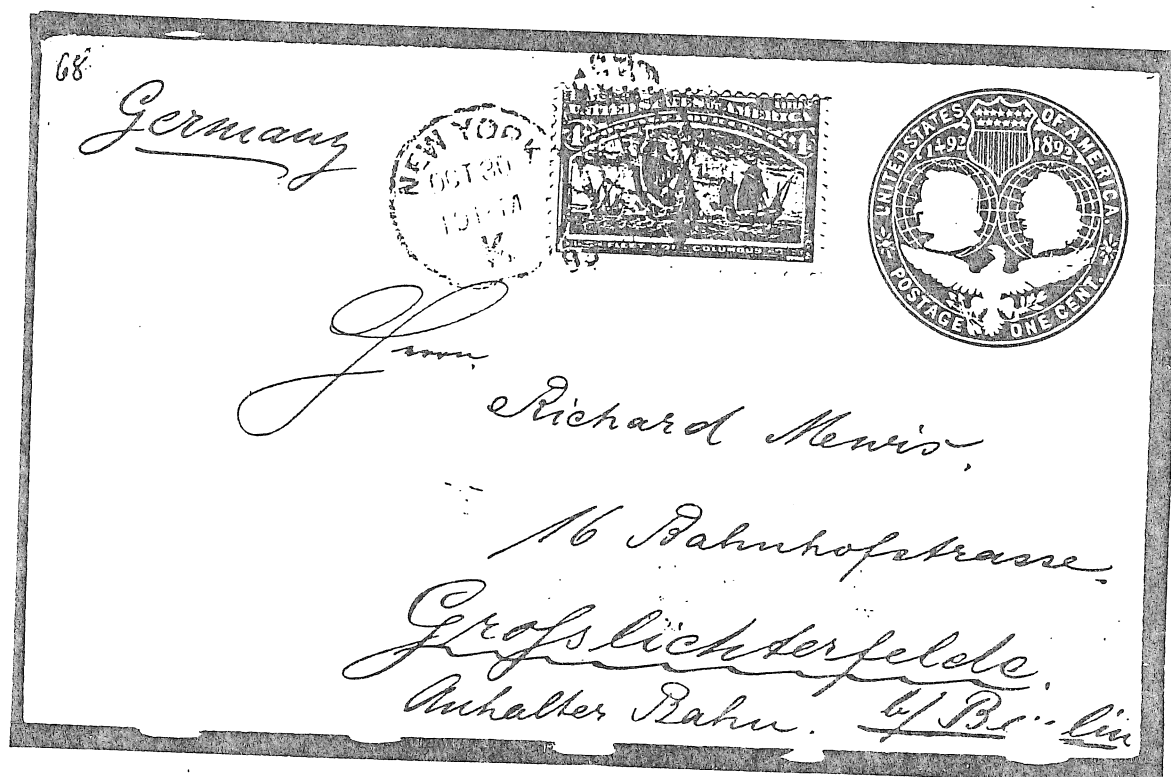 68
Germany
NEW YORK
OCT 30
93
UNITED STATES OF AMERICA
4 4
FLEET OF COLUMBUS
UNITED STATES OF AMERICA
1492 1892
POSTAGE ONE CENT.
Herrn
Richard Mewis.
16 Bahnhofstrasse.
Grosslichterfelde.
Anhalter Bahn. b/ Berlin